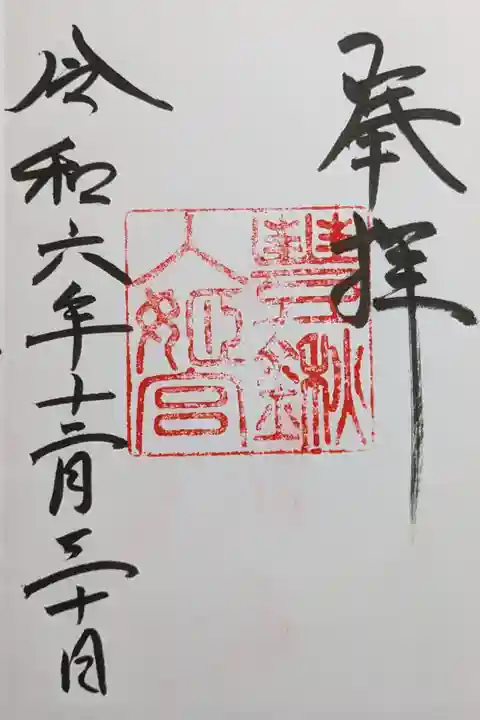 奉拝
豊鍬
入姫宮
令和六年十二月三十日